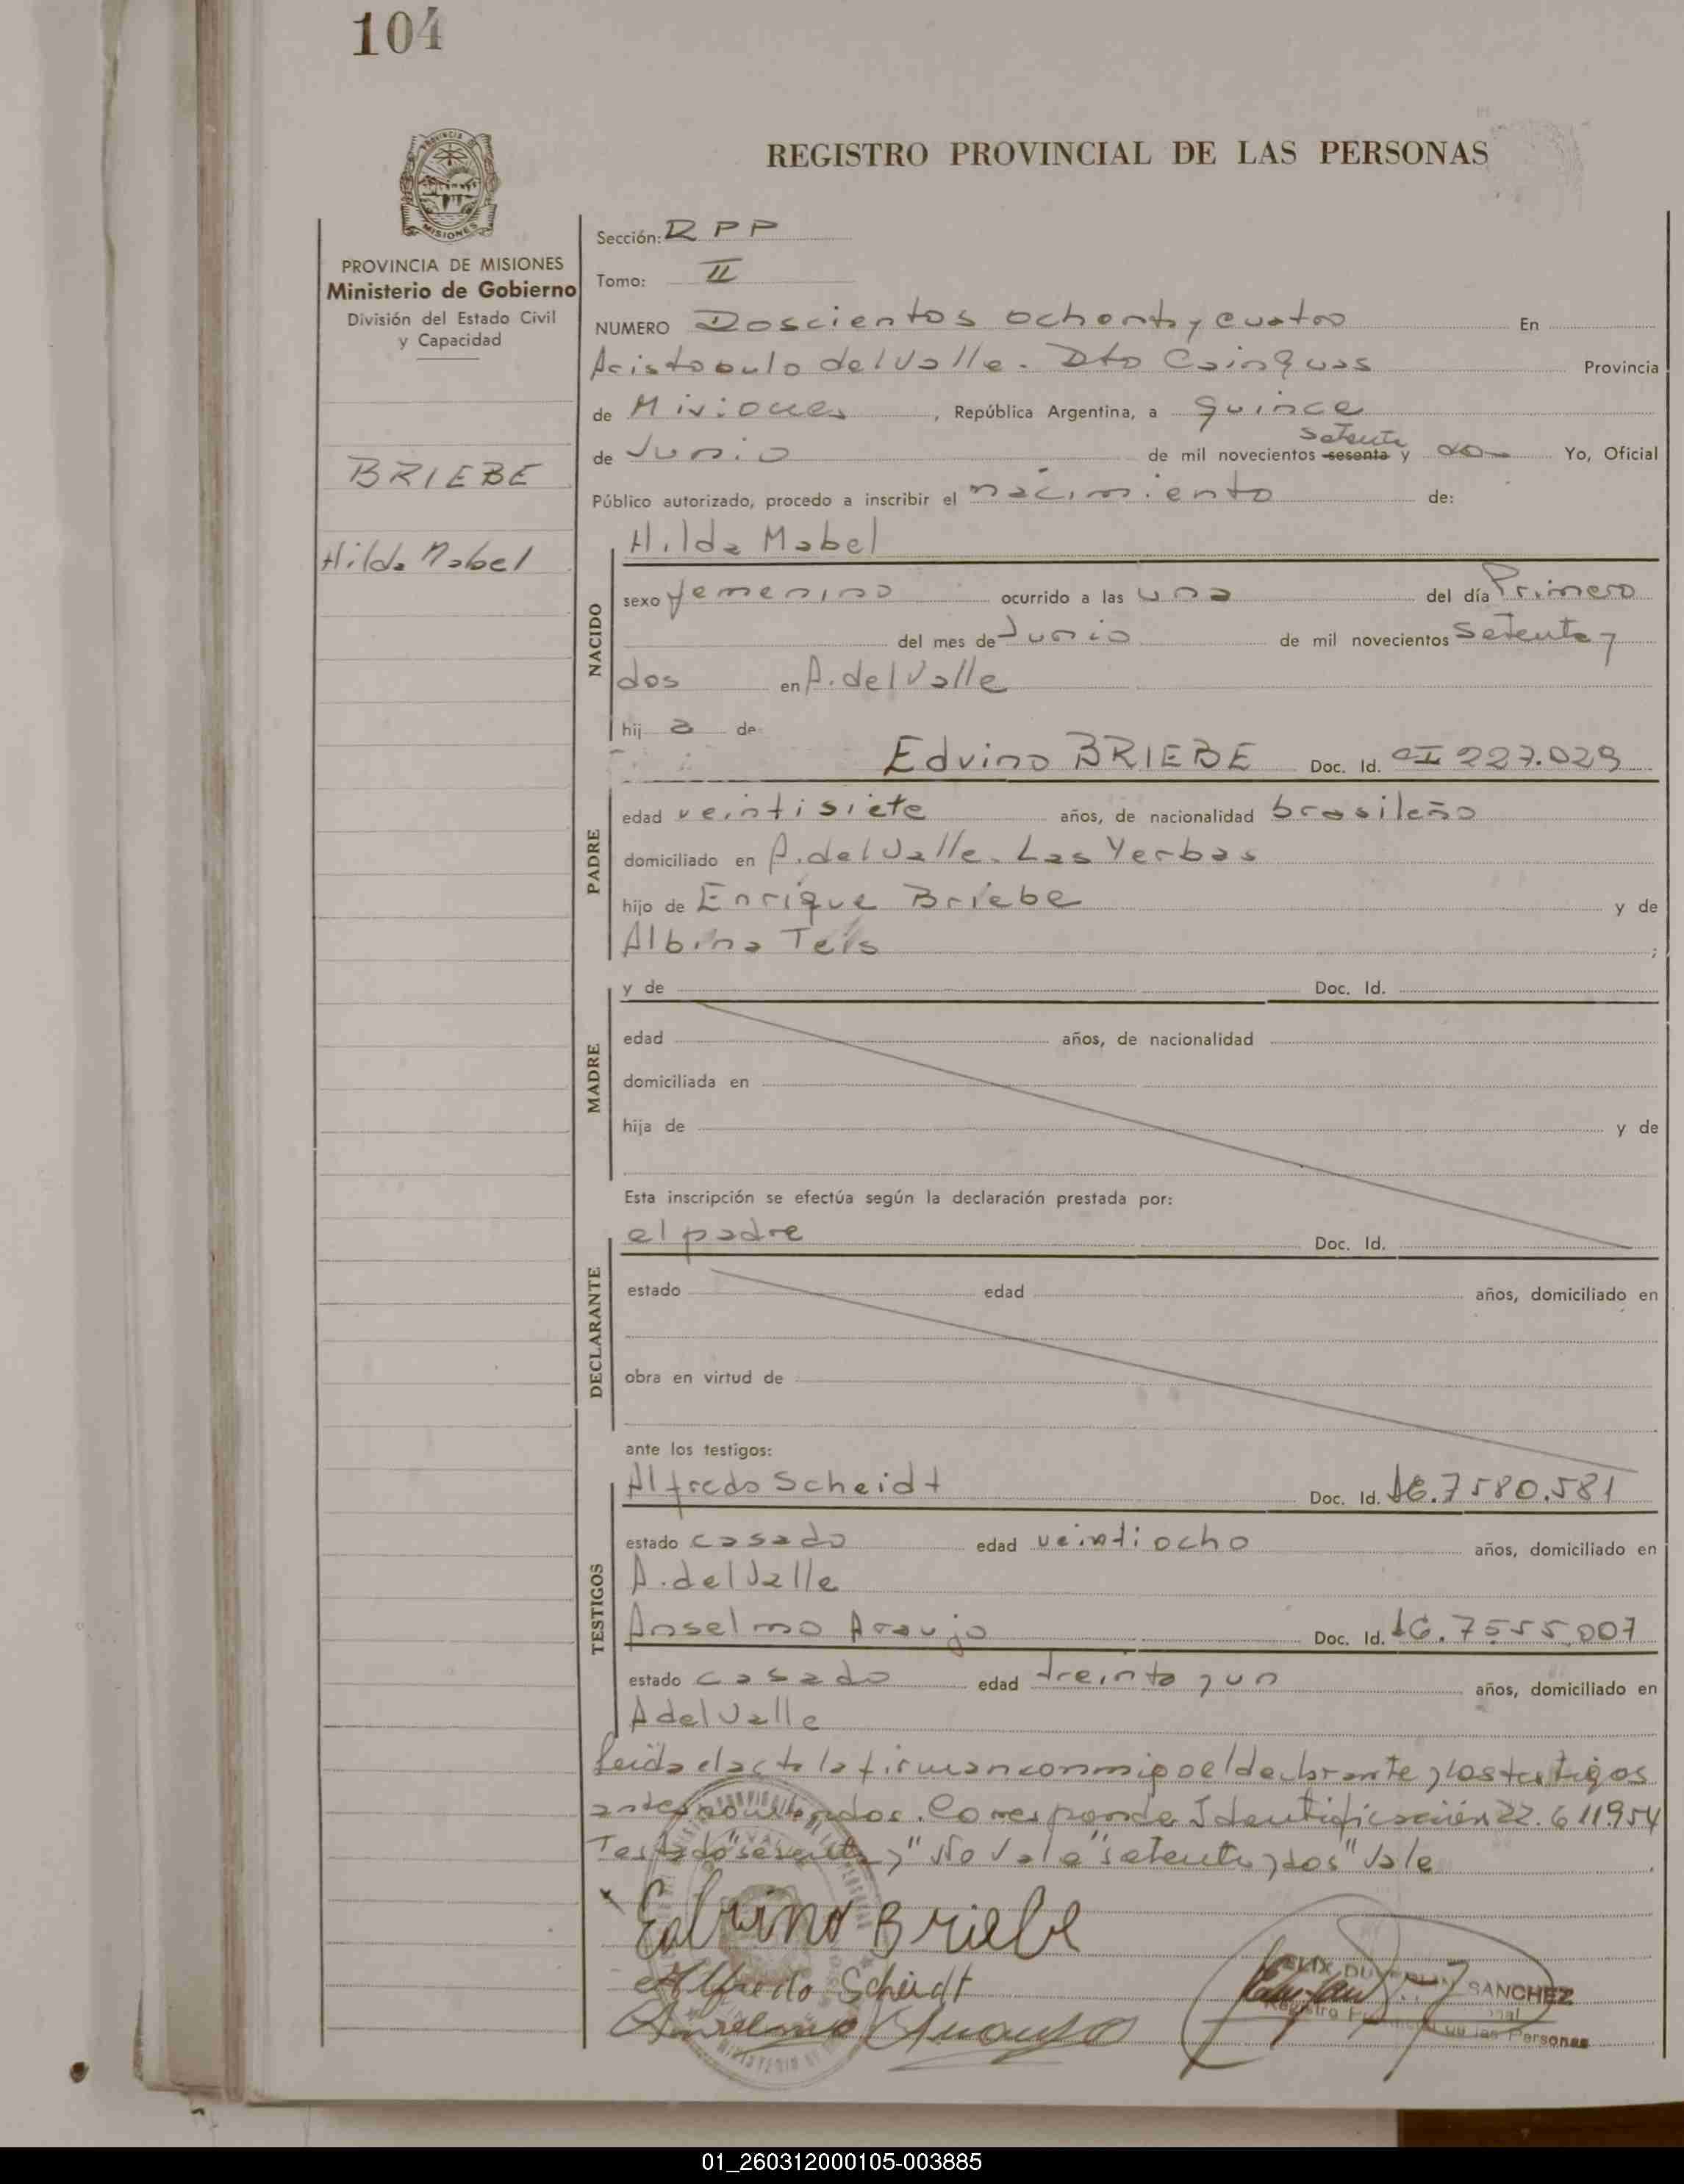 104
REGISTRO PROVINCIAL DE LAS PERSONAS
PROVINCIA
MISIONES
PROVINCIA DE MISIONES
Ministerio de Gobierno
División del Estado Civil
y Capacidad
BRIEBE
Hilda Mabel
Sección: RPP
Tomo: II
NUMERO Doscientos ochenta y cuatro En
Aristobulo del Valle. Dto Cainguas Provincia
de Misiones, República Argentina, a quince
setenta
de Junio de mil novecientos sesenta y dos Yo, Oficial
Público autorizado, procedo a inscribir el nacimiento de:
NACIDO
Hilda Mabel
sexo femenino ocurrido a las una del día Primero
del mes de Junio de mil novecientos setenta y
dos en A. del Valle
hij a de
Edvino BRIEBE Doc. Id. CI 227.029
PADRE
edad veintisiete años, de nacionalidad brasileño
domiciliado en A. del Valle. Las Yerbas
hijo de Enrique Briebe y de
Albina Teis ;
MADRE
y de Doc. Id.
edad años, de nacionalidad
domiciliada en
hija de y de
Esta inscripción se efectúa según la declaración prestada por:
DECLARANTE
el padre Doc. Id.
estado edad años, domiciliado en
obra en virtud de
ante los testigos:
TESTIGOS
Alfredo Scheidt Doc. Id. 7580.581
estado casado edad veintiocho años, domiciliado en
A. del Valle
Anselmo Araujo Doc. Id. 7555.007
estado casado edad treinta y un años, domiciliado en
A del Valle
Leida el acta la firman conmigo el declarante y los testigos
antes nombrados. Corresponde Identificación 22.611.954
Testado "sesenta y" No Vale "setenta y dos" Vale
Edvino Briebe
Alfredo Scheidt
Anselmo Araujo
SANCHEZ
Registro Provincial de las Personas
01_260312000105-003885